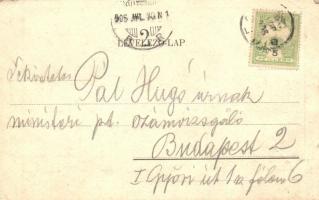 905 JUL. 20 N 1
2
LEVELEZŐ-LAP
Tekintetes
Pál Hugó úrnak
ministeri pt. számvizsgáló
Budapest 2
I Győri út 1 földm 6